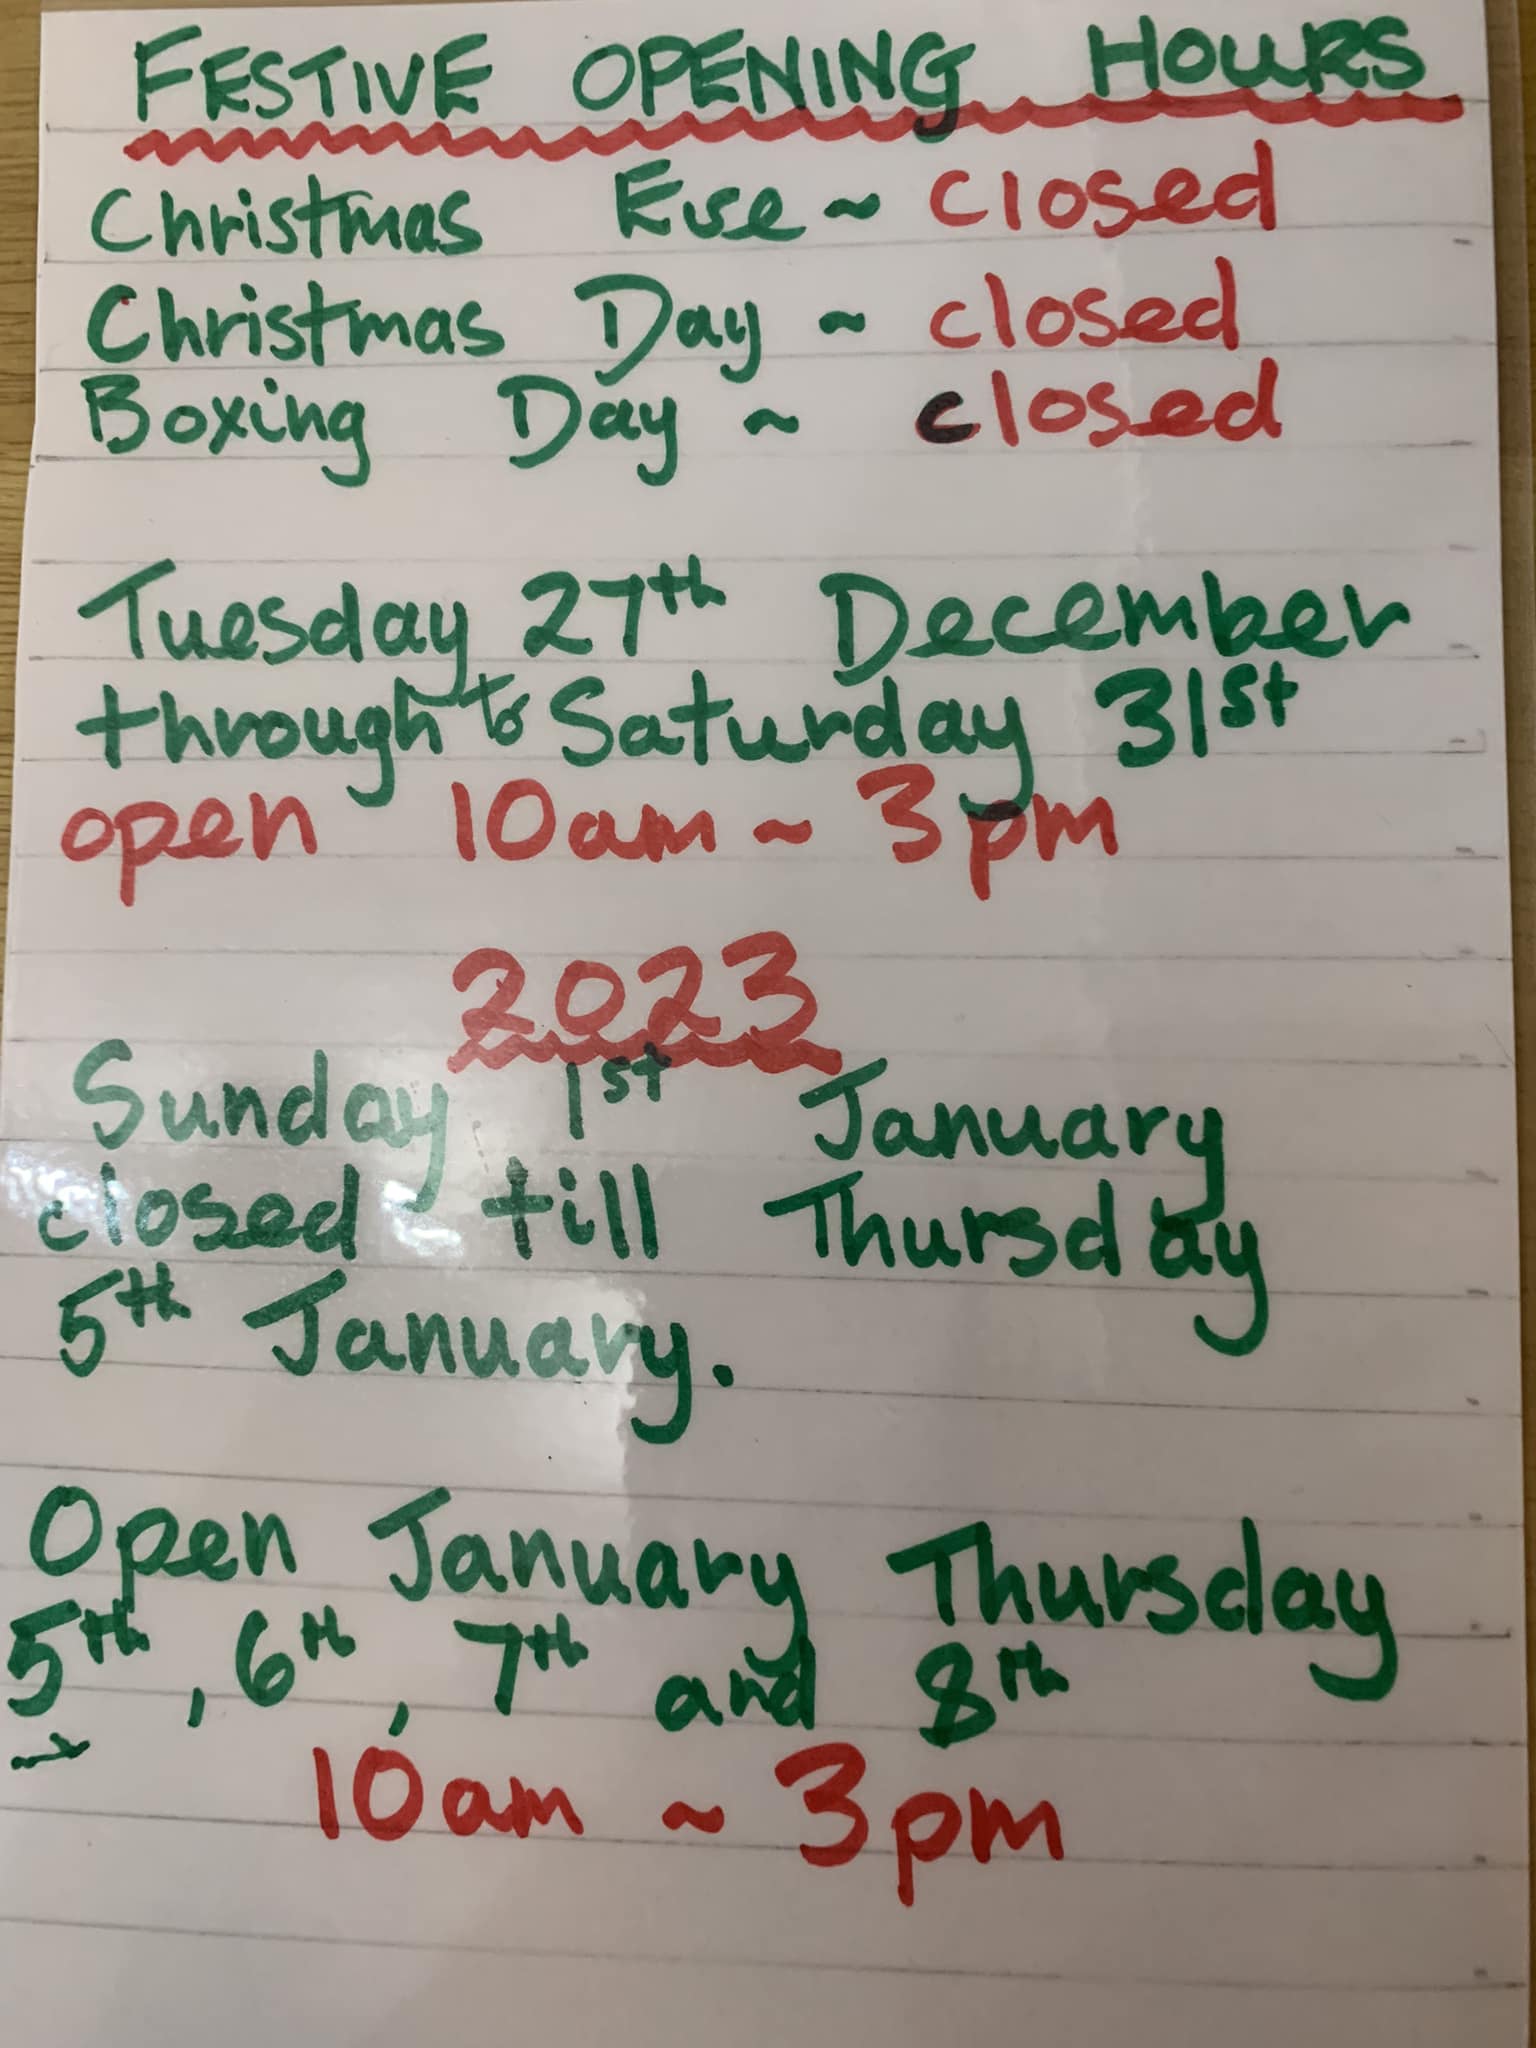 FESTIVE OPENING HOURS
Christmas Eve ~ closed
Christmas Day ~ closed
Boxing Day ~ closed
Tuesday 27th December
through to Saturday 31st
open 10am ~ 3pm
2023
Sunday 1st January
closed till Thursday
5th January.
Open January Thursday
5th, 6th, 7th and 8th
10am ~ 3pm